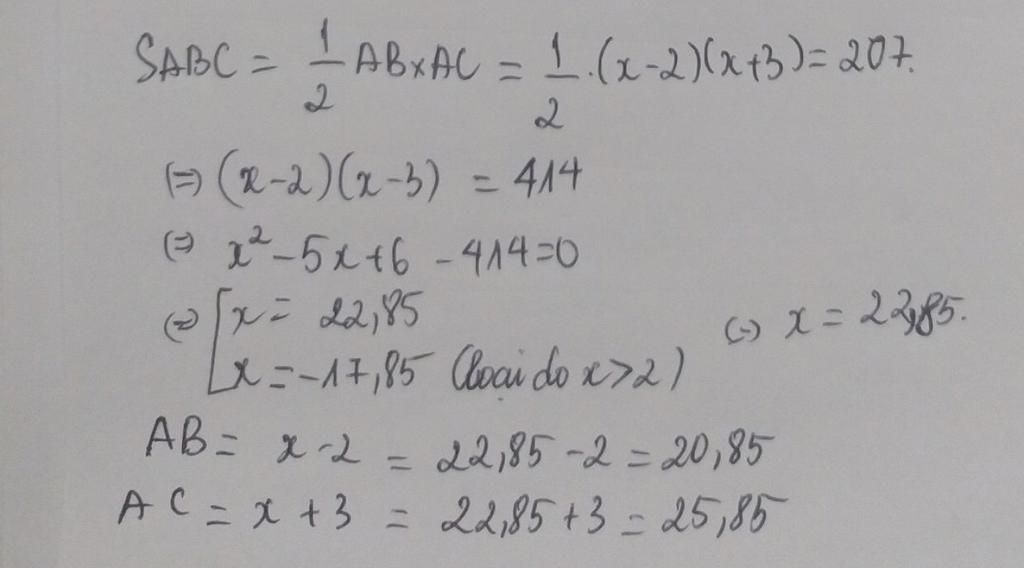 SABC = 1/2 AB x AC = 1/2 . (x-2)(x+3) = 207.
(=) (x-2)(x-3) = 414
(=) x² - 5x + 6 - 414 = 0
(=) [ x = 22,85
x = -17,85 (loại do x > 2) (=) x = 22,85.
AB = x - 2 = 22,85 - 2 = 20,85
AC = x + 3 = 22,85 + 3 = 25,85